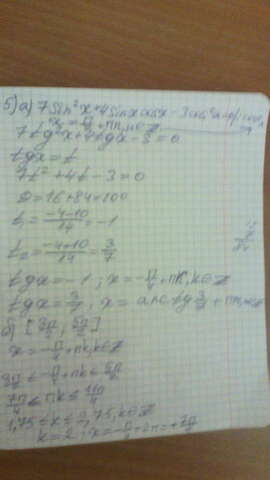 5) а) 7sin²x+4sinxcosx-3cos²x=0
7tg²x+4tgx-3=0
tgx=t
7t²+4t-3=0
D=16+84=100
t₁=(-4-10)/14=-1
t₂=(-4+10)/14=3/7
tgx=-1; x=-π/4+πk, k∈Z
tgx=3/7; x=arctg 3/7+πn, n∈Z
б) [3π/2; 5π/2]
x=-π/4+πk, k∈Z
3π/2≤-π/4+πk≤5π/2
7π/4≤πk≤11π/4
1,75≤k≤2,75, k∈Z
k=2; x=-π/4+2π=+7π/4